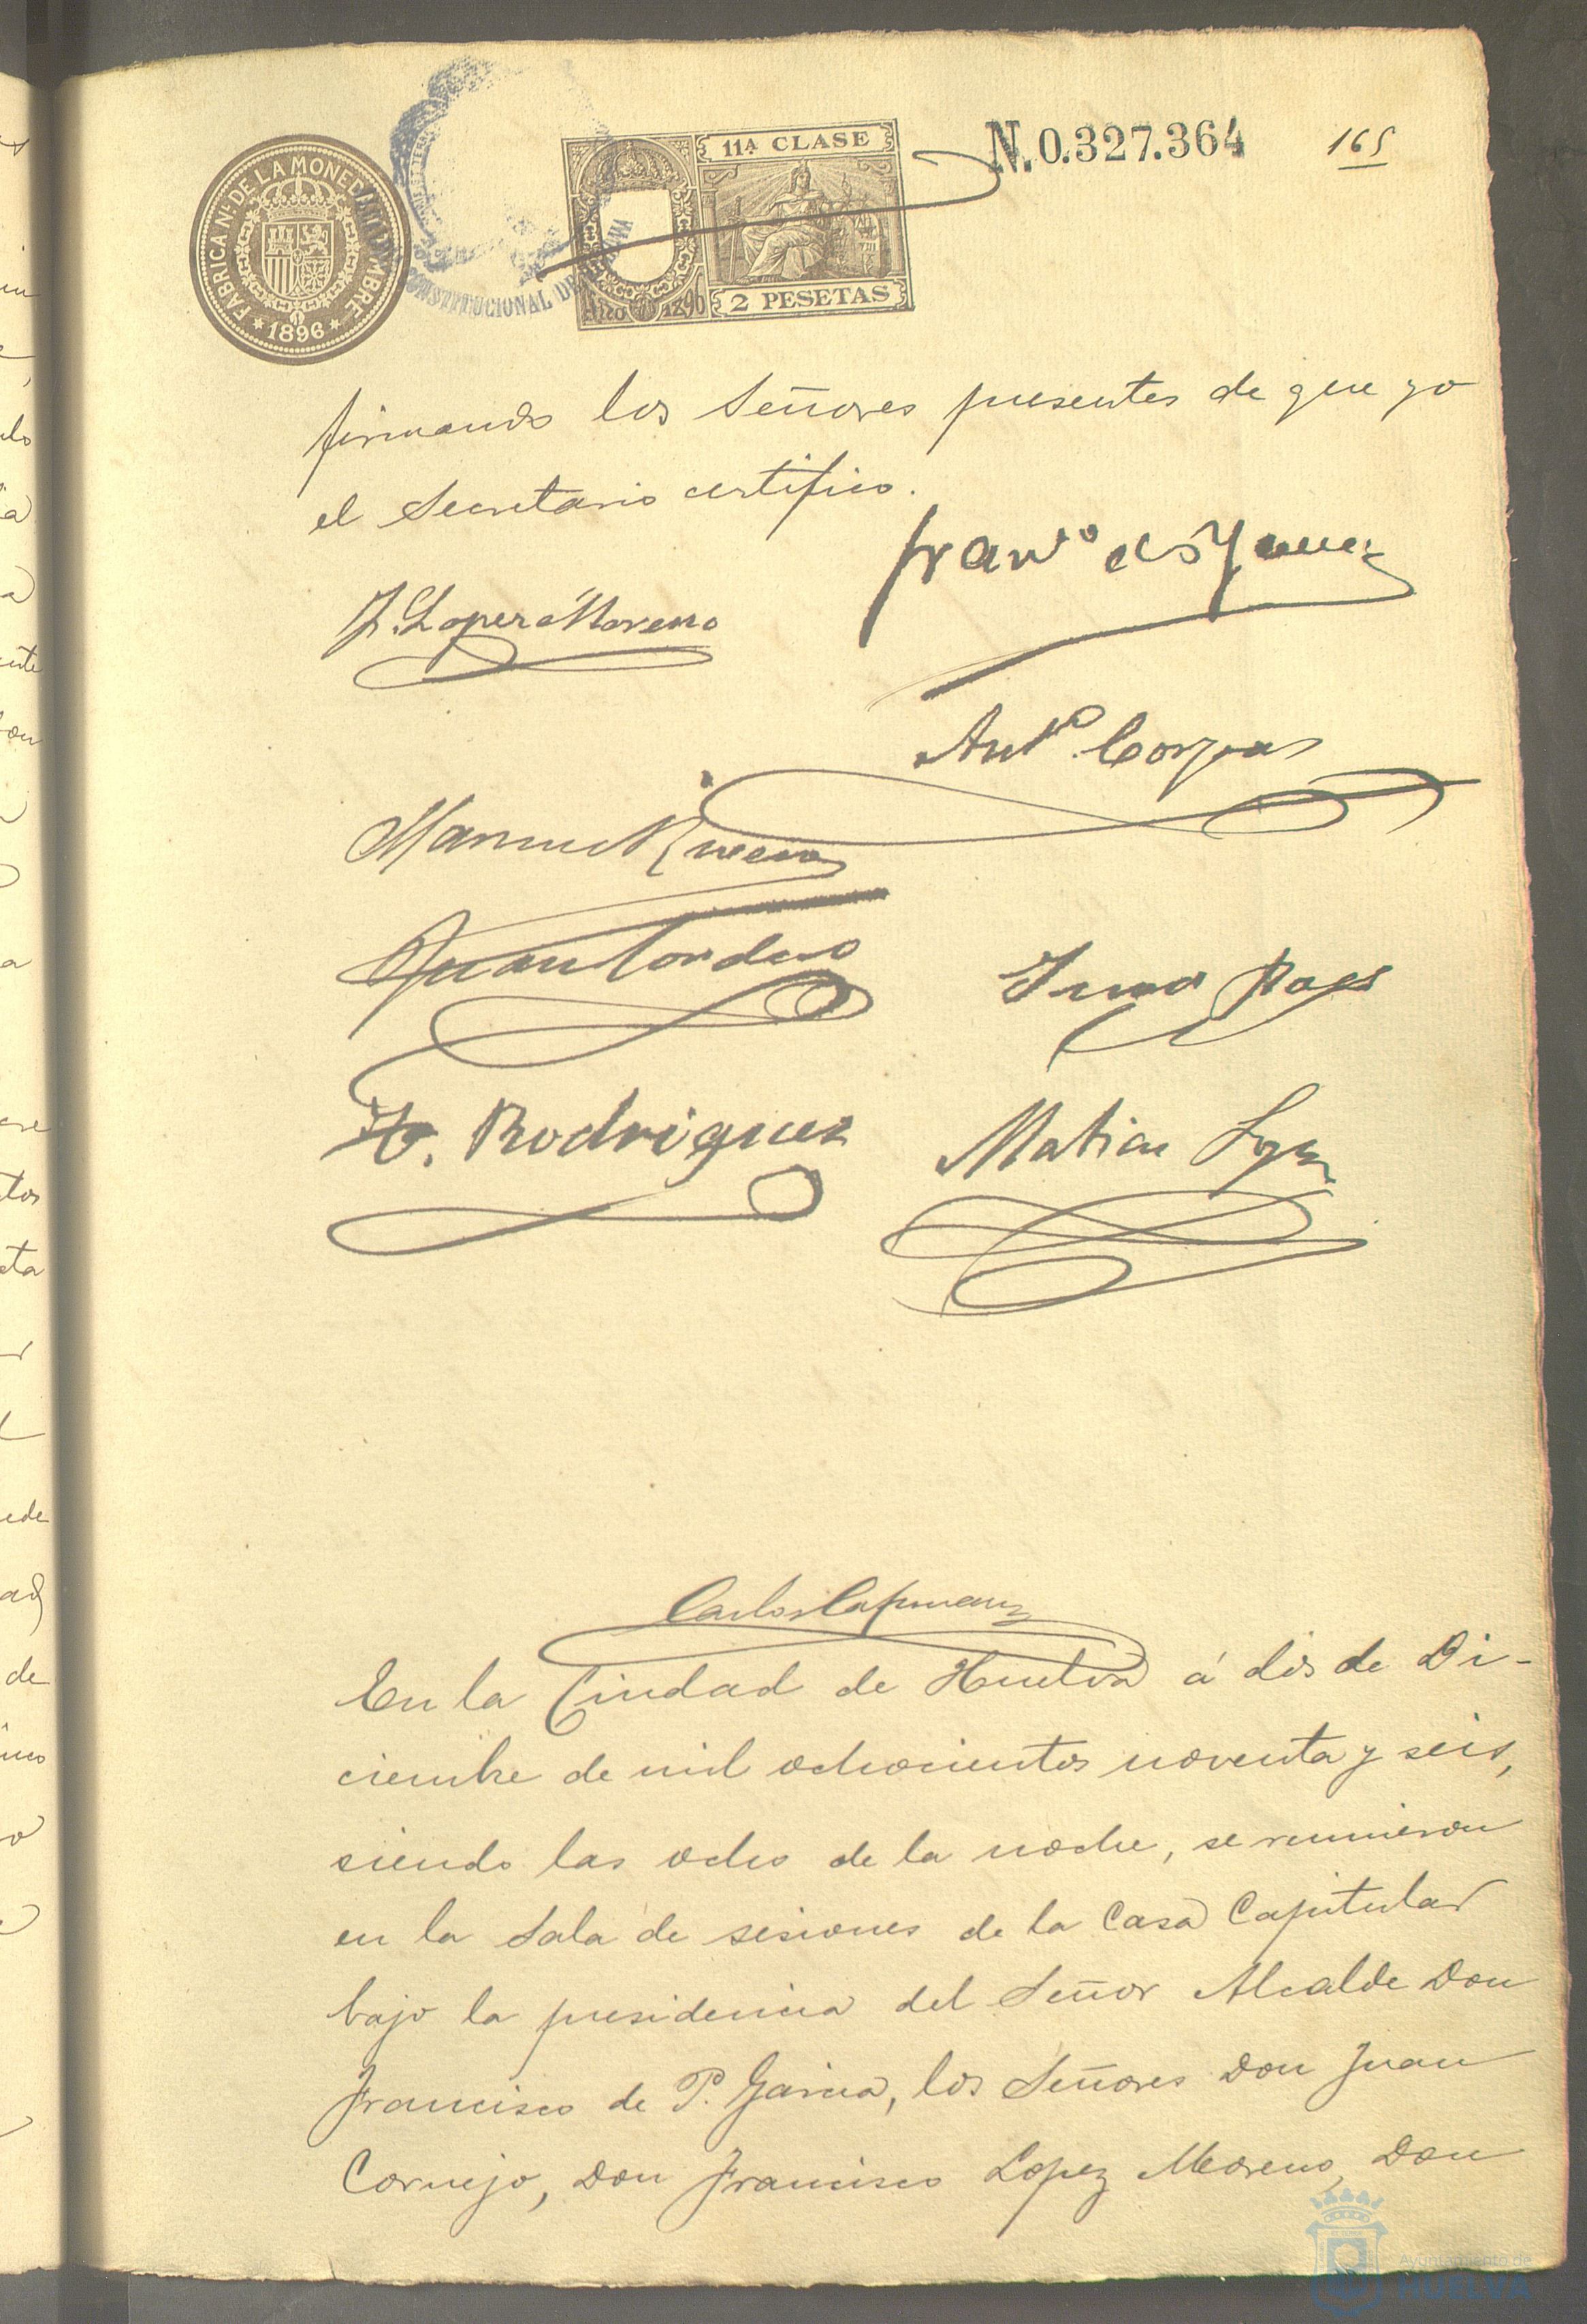 FABRICA NL. DE LA MONEDA Y TIMBRE
* 1896 *
CONSTITUCIONAL DE
11ª CLASE
Año 1896
2 PESETAS
N. 0.327.364
165
firmando los Señores presentes de que yo
el Secretario certifico.
F. Lopez Moreno
Antº. Corpas
Manuel
Juan Cordero
H. Rodriguez
Matias Lopez
Carlos Capmany
En la Ciudad de Huelva á dos de Di-
ciembre de mil ochocientos noventa y seis,
siendo las ocho de la noche, se reunieron
en la Sala de sesiones de la Casa Capitular
bajo la presidencia del Señor Alcalde Don
Francisco de P. Garcia, los Señores Don Juan
Cornejo, Don Francisco Lopez Moreno, Don
Ayuntamiento de
HUELVA